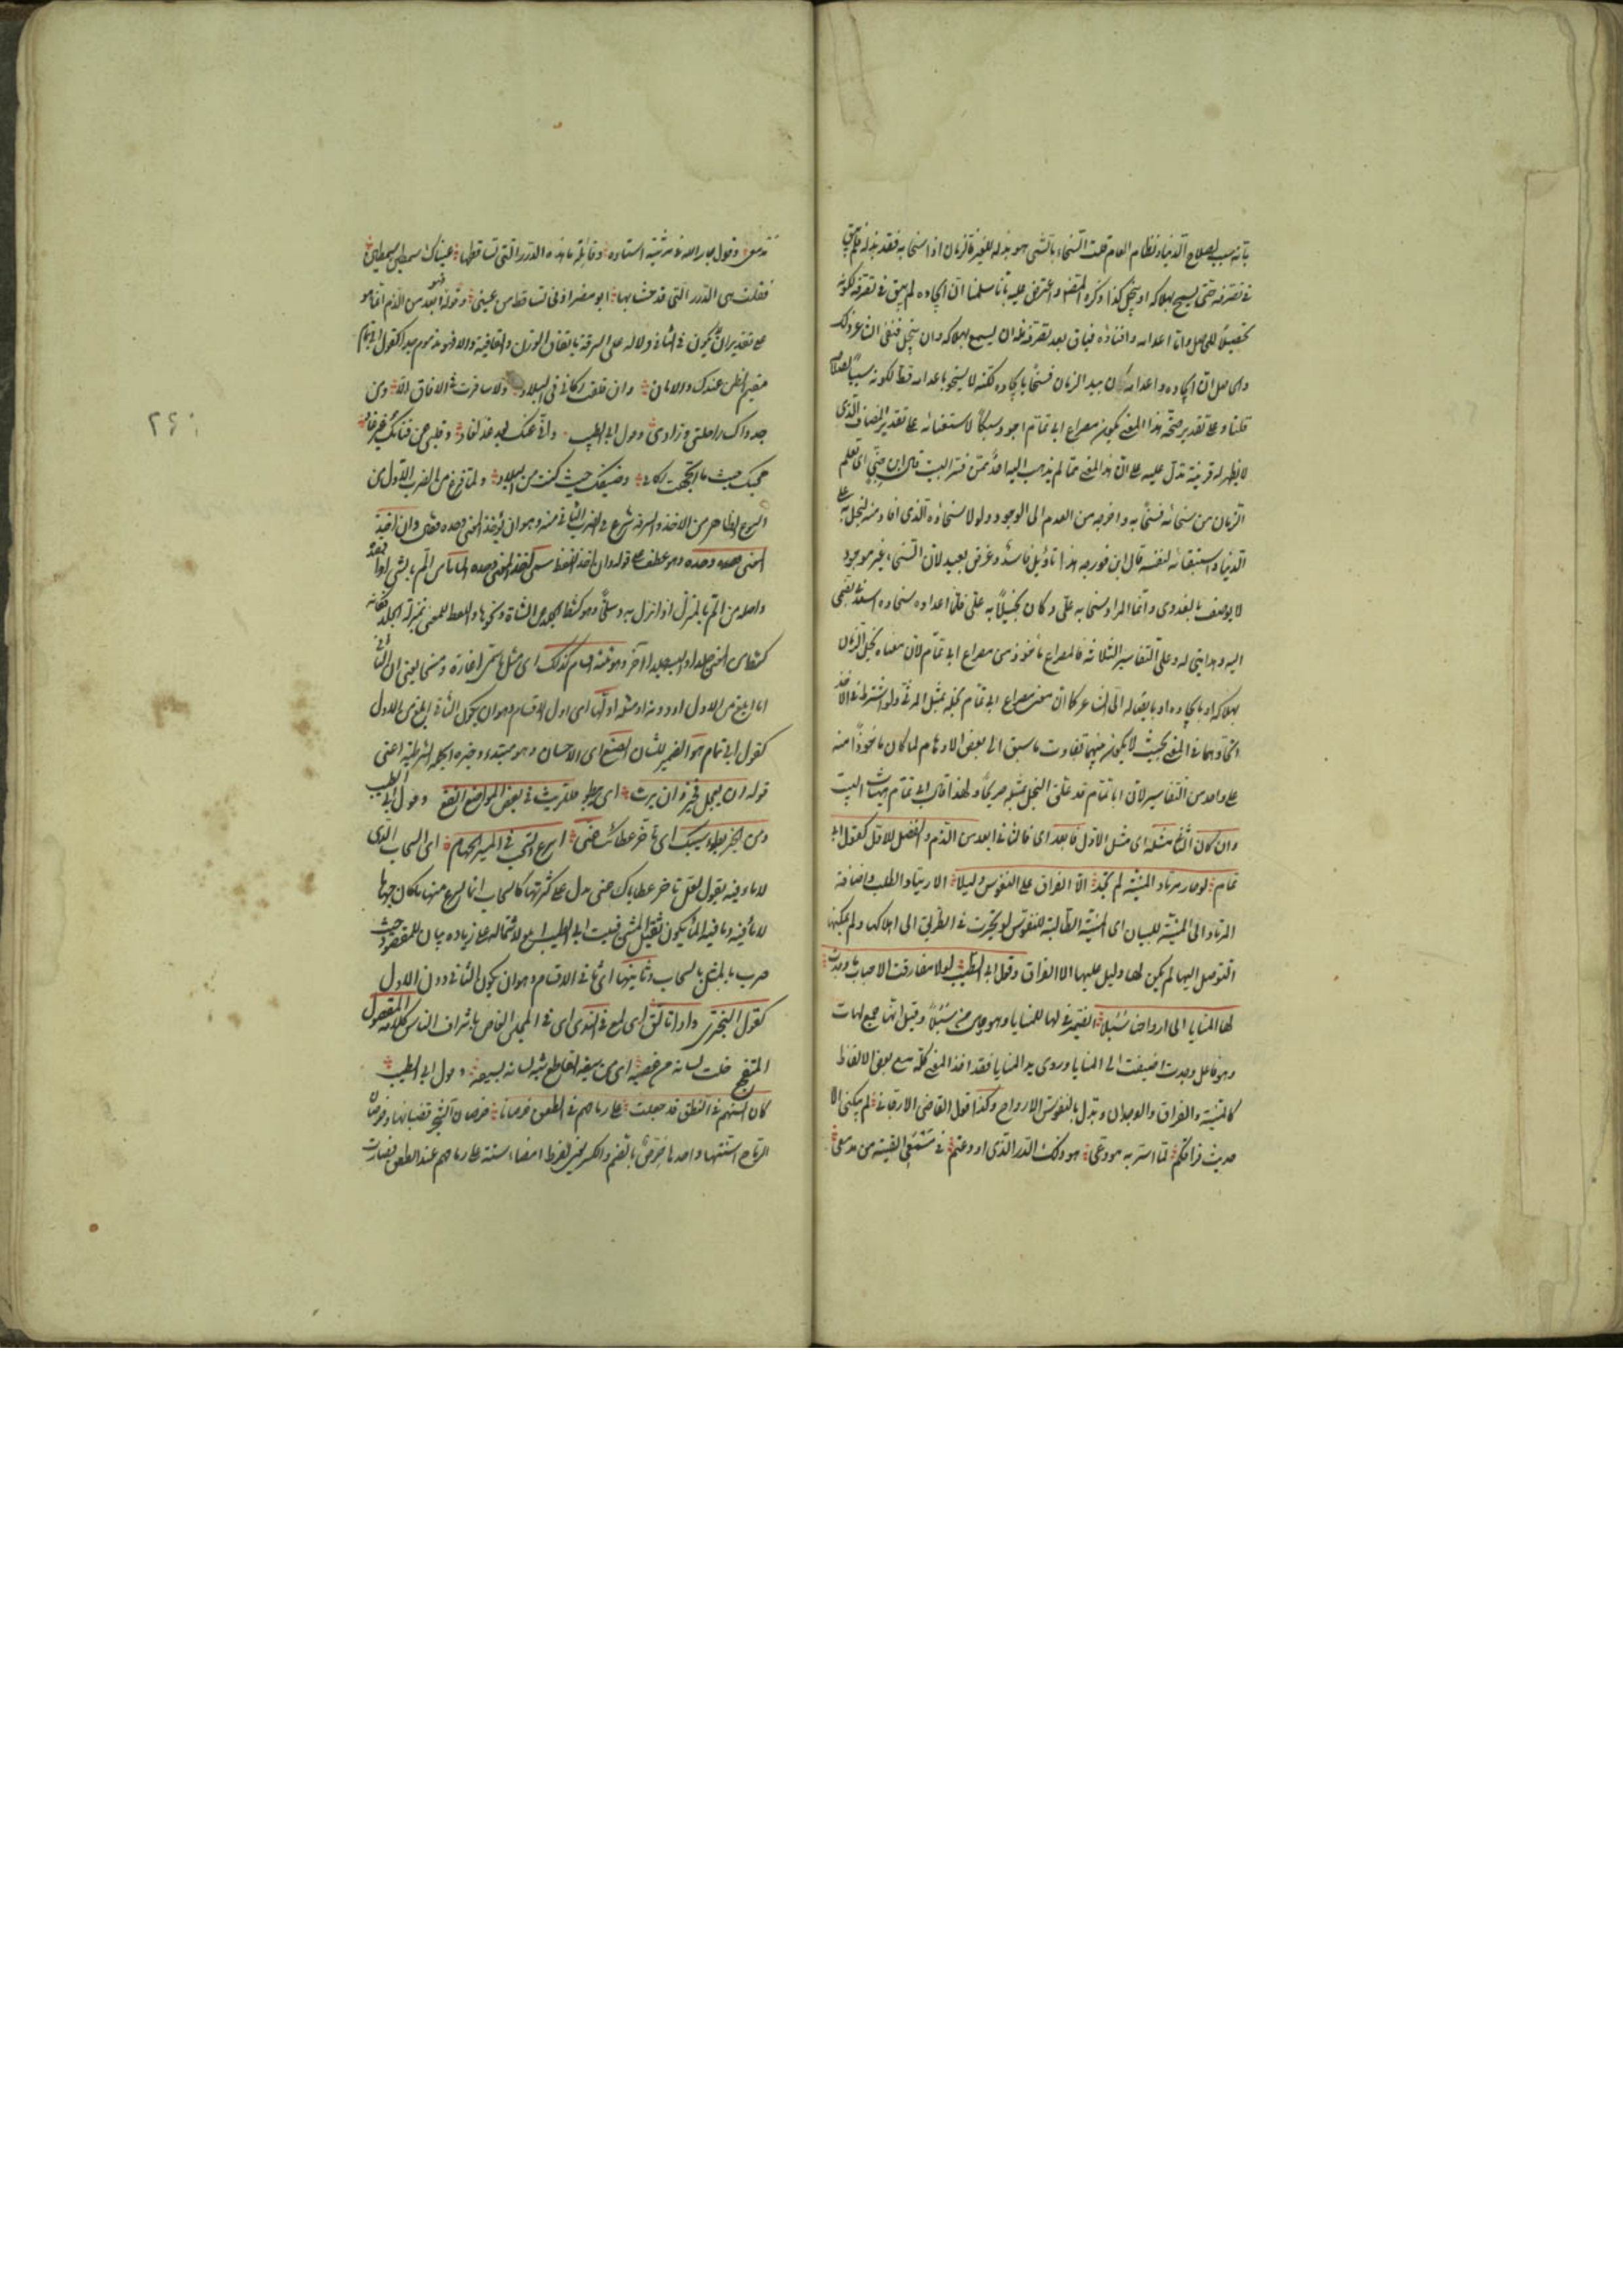 بانه سبب لصلاح الدنيا ونظام العالم قلت السخاء بالشئ هو بذله للغير فالزمان اذا سخا به فقد بذله فلم يبق
في تصرفه حتى يسمح بهلاكه او يبخل كذا ذكره المصنف واعترض عليه بانا سلمنا ان ايجاده لم يبق في تصرفه لكونه
تحصيلا للحاصل واما اعدامه وافناؤه فباق بعد تصرفه فله ان يسمح بهلاكه وان يبخل فنفى الشاعر ذلك
والحاصل ان ايجاده واعدامه كان بيد الزمان فسخا بايجاده لكنه لا يسخو باعدامه قط لكونه سببا لصلاح
قلنا وعلى تقدير صحة هذا المعنى يكون مصراع ابي تمام اجود سبكا لاستغنائه على تقدير المضاف الذي
لا يظهر له قرينة تدل عليه على ان هذا المعنى مما لم يذهب اليه احد ممن فسر البيت قال ابن جني اي تعلم
الزمان من سخائه فسخا به واخرجه من العدم الى الوجود ولولا سخاؤه الذي افاد منه لبخل به على
الدنيا واستبقاه لنفسه قال ابن فورجه هذا تاويل فاسد وغرض بعيد لان السخاء غير موجود
لا يوصف بالعدوى وانما المراد سخا به علي وكان بخيلا به علي فلما اعداه سخاؤه اسعدني بضمي
اليه وهدايتي له وعلى التفاسير الثلاثة فالمصراع ماخوذ من مصراع ابي تمام لان معناه بخل الزمان
بهلاكه او بايجاده او بايصاله الى الشاعر كما ان معنى مصراع ابي تمام بخله بمثل المرثي ولو اشترط في الاخذ
اتحادهما في المعنى بحيث لا يكون بينهما تفاوت ما سبق الى بعض الاوهام لما كان ماخوذا منه
على واحد من التفاسير لان ابا تمام قد علق البخل بمثله صريحا ولهذا قال ابو تمام هيهات البيت
وان كان الثاني مثله اي مثل الاول فابعد اي فالثاني ابعد من الذم والفضل للاول كقول ابي
تمام لو حار مرتاد المنية لم تجد الا الفراق على النفوس دليلا الارتياد الطلب واضافة
المرتاد الى المنية للبيان اي المنية الطالبة للنفوس لو تحيرت في الطريق الى اهلاكها ولم يمكنها
التوصل اليها لم يكن لها دليل عليها الا الفراق وقول ابي الطيب لولا مفارقة الاحباب ما وجدت
لها المنايا الى ارواحنا سبلا الضمير في لها للمنايا وهو حال من سبلا وقيل انها جمع لهات
وهو فاعل وجدت اضيفت الى المنايا وروي يد المنايا فقد اخذ المعنى كله مع بعض الالفاظ
كالمنية والفراق والوجدان وبدل بالنفوس الارواح وكذا قول القاضي الارجاني لم يبكني الا
حديث فراقكم لما اسر به هو مودعي هو ذلك الدر الذي اودعتم في مسمعي القيته من مدمعي
وقول جار الله في مرثية استاده وقائلة ما هذه الدرر التي تساقطها عيناك سمطين سمطين
فقلت هي الدرر التي قد حشا بها ابو مضر اذني تساقط من عيني وقوله فهو ابعد من الذم انما هو
على تقدير ان لا يكون في الثاني دلالة على السرقة باتفاق الوزن والقافية والا فهو مذموم جدا كقول ابي تمام
مقيم الظن عندك والاماني وان قلقت ركابي في البلاد ولا سافرت في الافاق الا ومن
جدواك راحلتي وزادي وقول ابي الطيب واني عنك بعد غد لغاد وقلبي عن فنائك غير غاد
محبك حيث ما اتجهت ركابي وضيفك حيث كنت من البلاد ولما فرغ من الضرب الاول من
النوع الظاهر من الاخذ والسرقة شرع في الضرب الثاني منه وهو ان يؤخذ المعنى وحده فقال وان اخذ
المعنى وحده وهو عطف على قوله وان اخذ اللفظ سمي اخذ المعنى وحده الماما من الم بالشئ اذا قصده
واصله من الم بالمنزل اذا نزل به وسلخا وهو كشط الجلد عن الشاة ونحوها واللفظ للمعنى بمنزلة الجلد فكانه
كشط من المعنى جلدا والبسه جلدا اخر وهو ثلثة اقسام كذلك اي مثل ما سمي اغارة ومسخا يعني ان الثاني
اما ابلغ من الاول او دونه او مثله اولها اي اول الاقسام وهو ان يكون الثاني ابلغ من الاول
كقول ابي تمام هو الضمير للشان الصنع اي الاحسان وهو مبتدء وخبره الجملة الشرطية اعني
قوله ان يعجل فخير وان يرث اي يبطؤ فللريث في بعض المواضع انفع وقول ابي الطيب
ومن الخير بطء سيبك اي تاخر عطائك عني اسرع السحب في المسير الجهام اي السحاب الذي
لا ماء فيه يقول لعل تاخر عطاياك عني يدل على كثرتها كالسحاب انما يسرع منها ما كان جهاما
لا ماء فيه وما فيه الماء يكون ثقيل المشي فبيت ابي الطيب ابلغ لاشتماله على زيادة بيان للمقصود حيث
ضرب المثل بالسحاب وثانيها اي ثاني الاقسام وهو ان يكون الثاني دون الاول
كقول البحتري واذا تالق اي لمع في الندى اي في المجلس الغاص باشراف الناس كلامه المصقول
المنقح خلت لسانه من عضبه اي من سيفه القاطع شبه لسانه بسيفه وقول ابي الطيب
كان السنهم في النطق قد جعلت على رماحهم في الطعن خرصانا خرصان الشجر قضبانها وخرصان
الرماح اسنتها واحدها خرص بالضم والكسر يعني لفرط امضاء اسنة على رماحهم عند الطعن فصارت